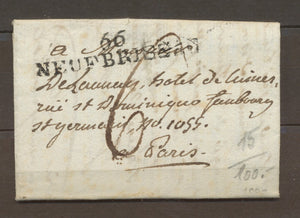 66
NEUFBRISACH
a
Desaunay, hotel de Luines,
rüe st Dominique faubourg
st germain, No. 1055.
6
a Paris.
15
100-
100-